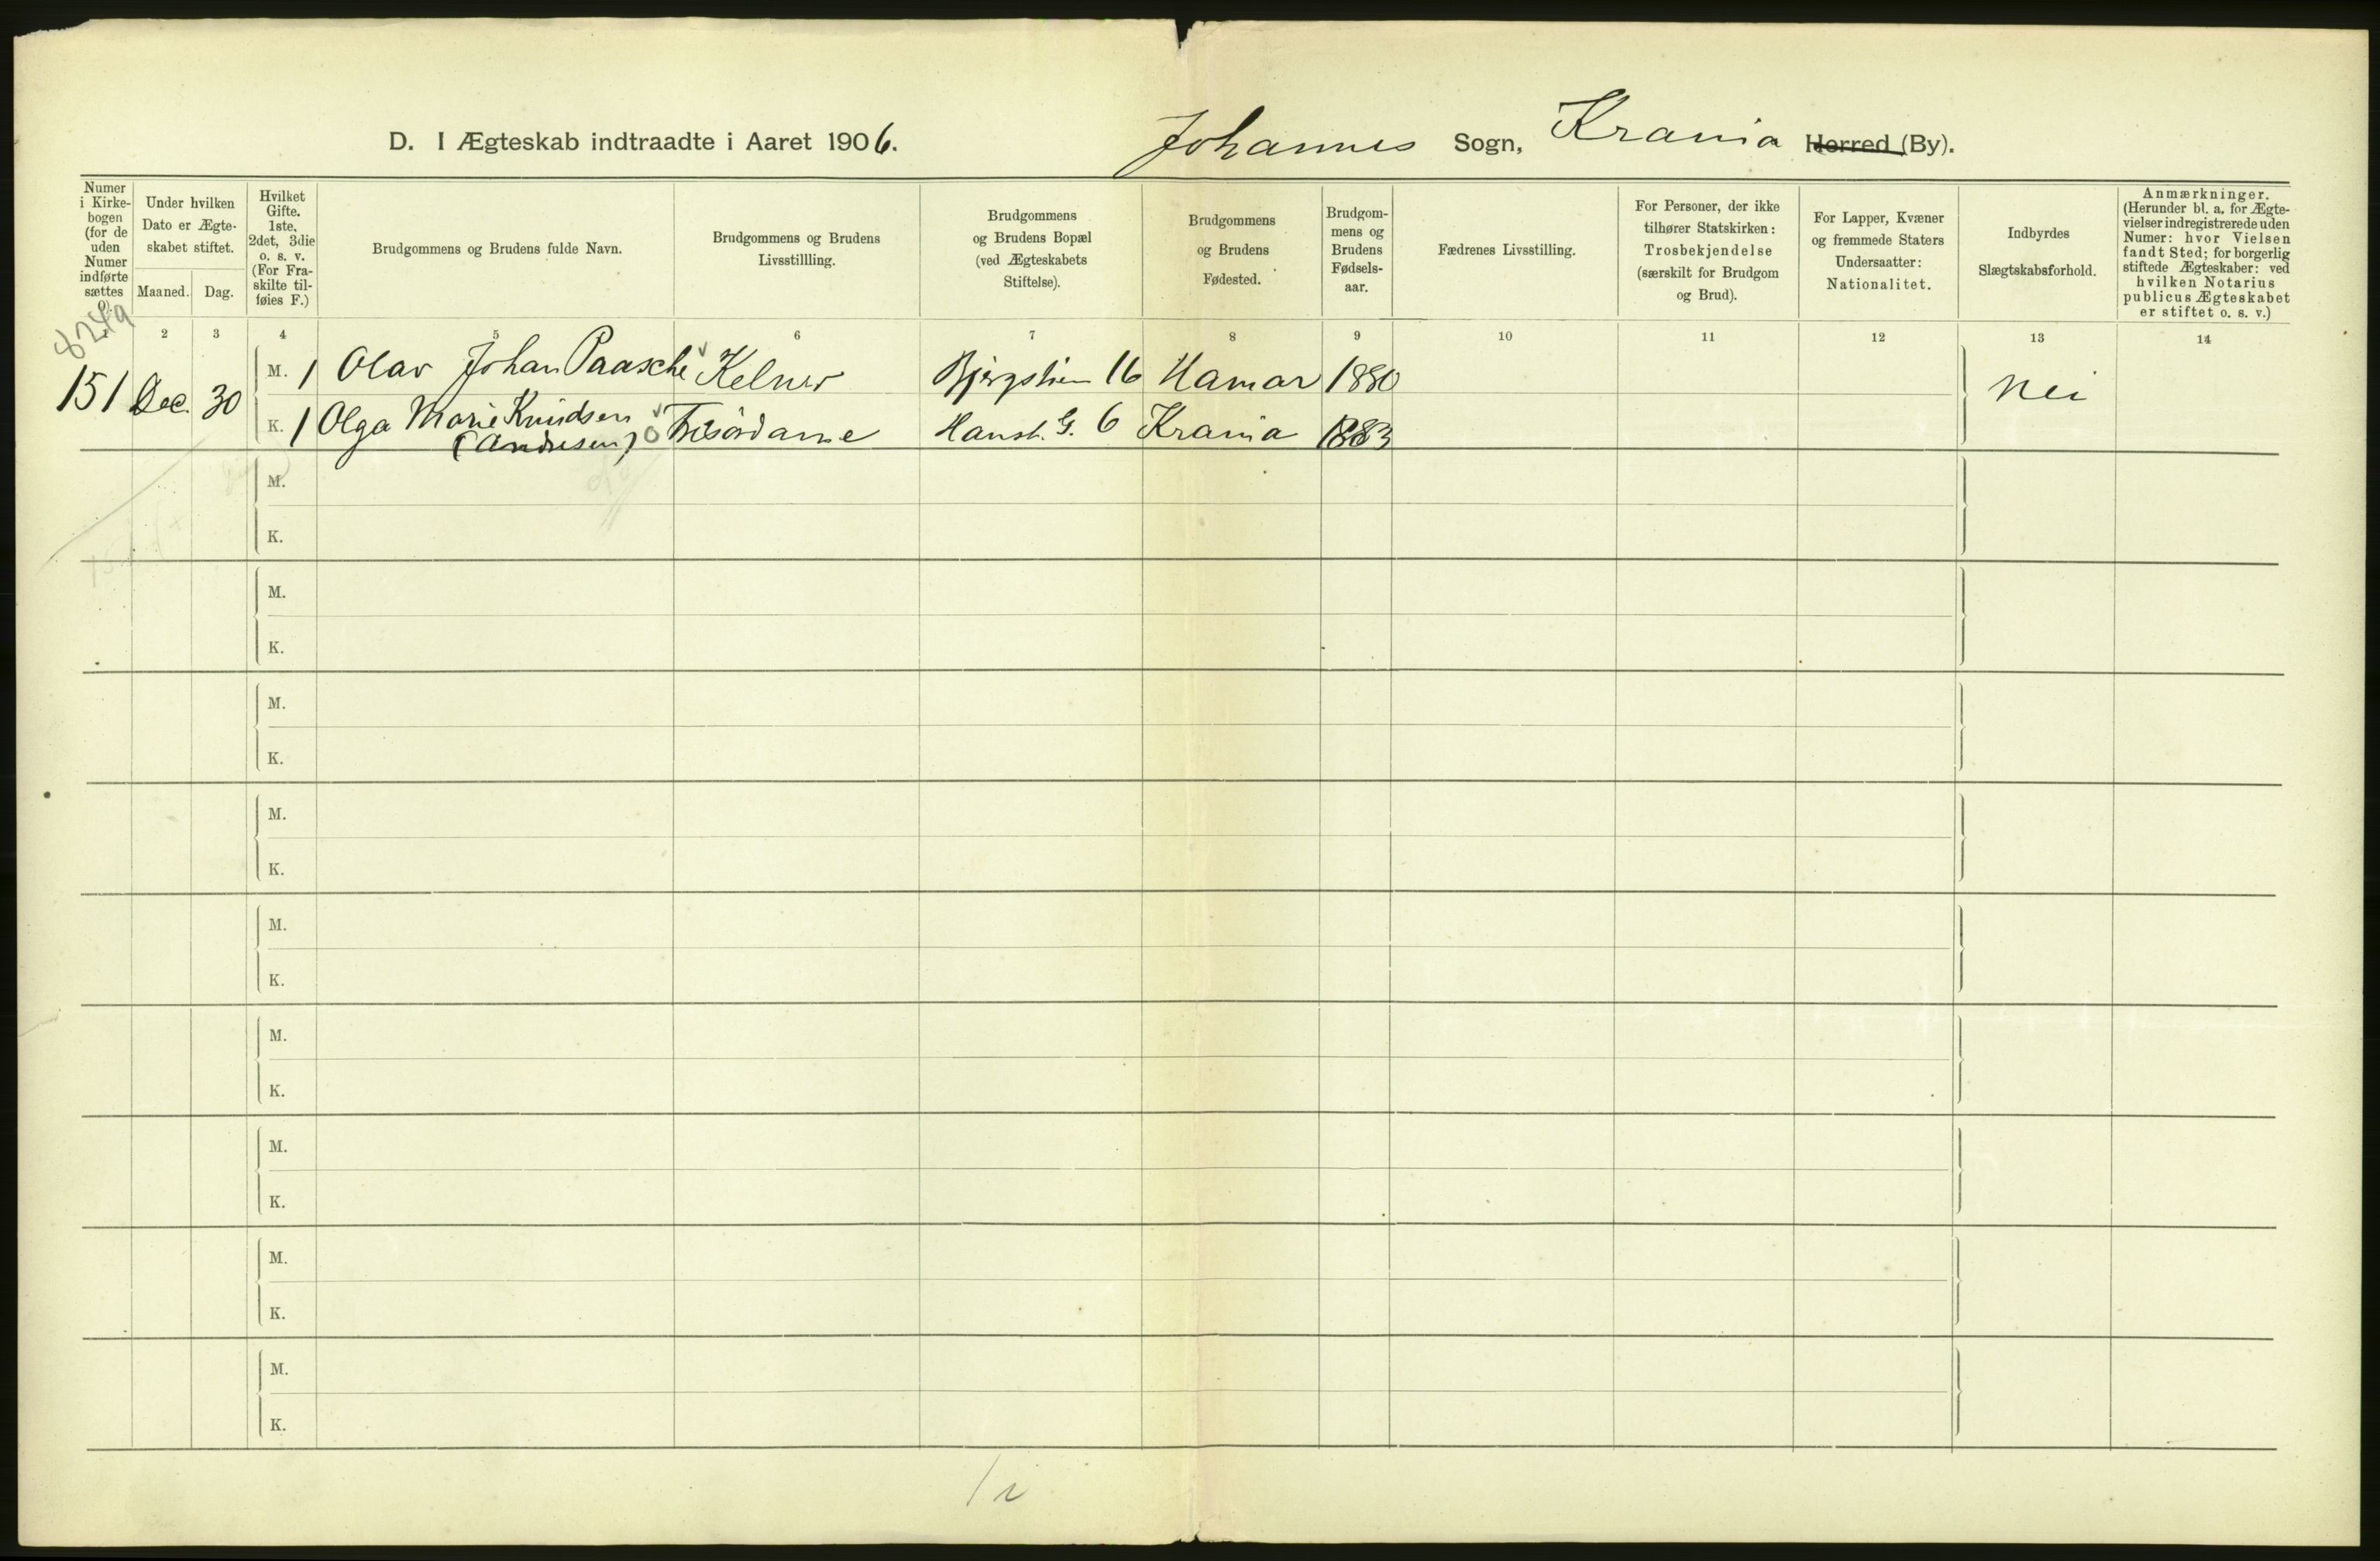 D. I Ægteskab indtraadte i Aaret 1906. Johannes Sogn, Krania Herred (By).
Numer
i Kirke-
bogen
(for de
uden
Numer
indførte
sættes
0).
Under hvilken
Dato er Ægte-
skabet stiftet.
Maaned. Dag.
Hvilket
Gifte.
1ste,
2det, 3die
o. s. v.
(For Fra-
skilte til-
føies F.)
Brudgommens og Brudens fulde Navn.
Brudgommens og Brudens
Livsstillling.
Brudgommens
og Brudens Bopæl
(ved Ægteskabets
Stiftelse).
Brudgommens
og Brudens
Fødested.
Brudgom-
mens og
Brudens
Fødsels-
aar.
Fædrenes Livsstilling.
For Personer, der ikke
tilhører Statskirken:
Trosbekjendelse
(særskilt for Brudgom
og Brud).
For Lapper, Kvæner
og fremmede Staters
Undersaatter:
Nationalitet.
Indbyrdes
Slægtskabsforhold.
Anmærkninger.
(Herunder bl. a. for Ægte-
vielser indregistrerede uden
Numer: hvor Vielsen
fandt Sted; for borgerlig
stiftede Ægteskaber: ved
hvilken Notarius
publicus Ægteskabet
er stiftet o. s. v.)
1 2 3 4 5 6 7 8 9 10 11 12 13 14
8249
151 Dec. 30
M. 1 Olav Johan Paasche Kelner 16 Hamar 1880
nei
K. 1 Olga Marie Knudsen 6 Krania 1883
(Andresen)
M.
K.
M.
K.
M.
K.
M.
K.
M.
K.
M.
K.
M.
K.
M.
K.
M.
K.